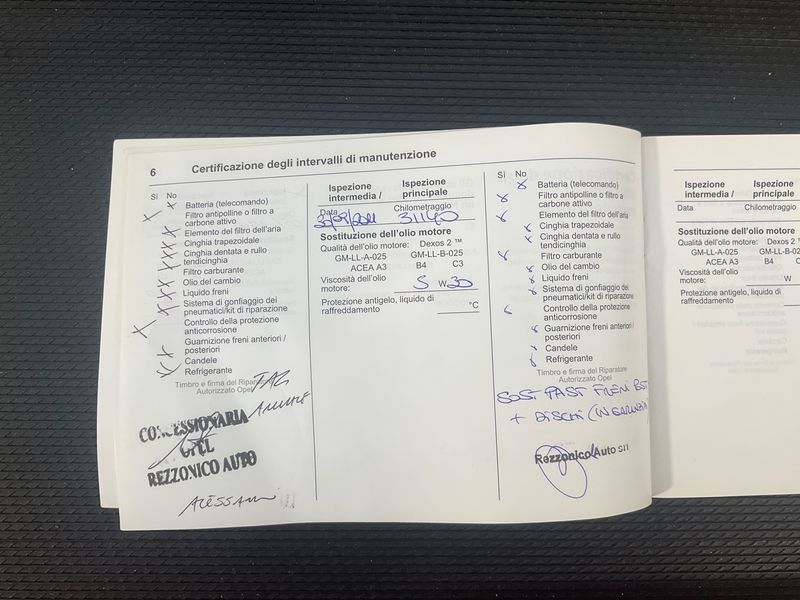 6 Certificazione degli intervalli di manutenzione
Sì No
Batteria (telecomando)
Filtro antipolline o filtro a
carbone attivo
Elemento del filtro dell'aria
Cinghia trapezoidale
Cinghia dentata e rullo
tendicinghia
Filtro carburante
Olio del cambio
Liquido freni
Sistema di gonfiaggio dei
pneumatici/kit di riparazione
Controllo della protezione
anticorrosione
Guarnizione freni anteriori /
posteriori
Candele
Refrigerante
Timbro e firma del Riparatore
Autorizzato Opel
CONCESSIONARIA
OPEL
REZZONICO AUTO
Ispezione
intermedia /
Ispezione
principale
Data
Chilometraggio
31140
Sostituzione dell'olio motore
Qualità dell'olio motore: Dexos 2 ™
GM-LL-A-025 GM-LL-B-025
ACEA A3 B4 C3
Viscosità dell'olio
motore: 5 W 30
Protezione antigelo, liquido di
raffreddamento °C
Sì No
Batteria (telecomando)
Filtro antipolline o filtro a
carbone attivo
Elemento del filtro dell'aria
Cinghia trapezoidale
Cinghia dentata e rullo
tendicinghia
Filtro carburante
Olio del cambio
Liquido freni
Sistema di gonfiaggio dei
pneumatici/kit di riparazione
Controllo della protezione
anticorrosione
Guarnizione freni anteriori /
posteriori
Candele
Refrigerante
Timbro e firma del Riparatore
Autorizzato Opel
SOST PAST FRENI
+ DISCHI (IN GARANZIA)
Rezzonico Auto srl
Ispezione
intermedia /
Ispezione
principale
Data
Chilometraggio
Sostituzione dell'olio motore
Qualità dell'olio motore: Dexos 2
GM-LL-A-025 GM-LL-B-02
ACEA A3 B4 C
Viscosità dell'olio
motore: W
Protezione antigelo, liquido di
raffreddamento